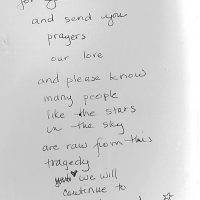 for
and send you
prayers
our love
and please know
many people
like the stars
in the sky
are raw from this
tragedy
we will
continue to